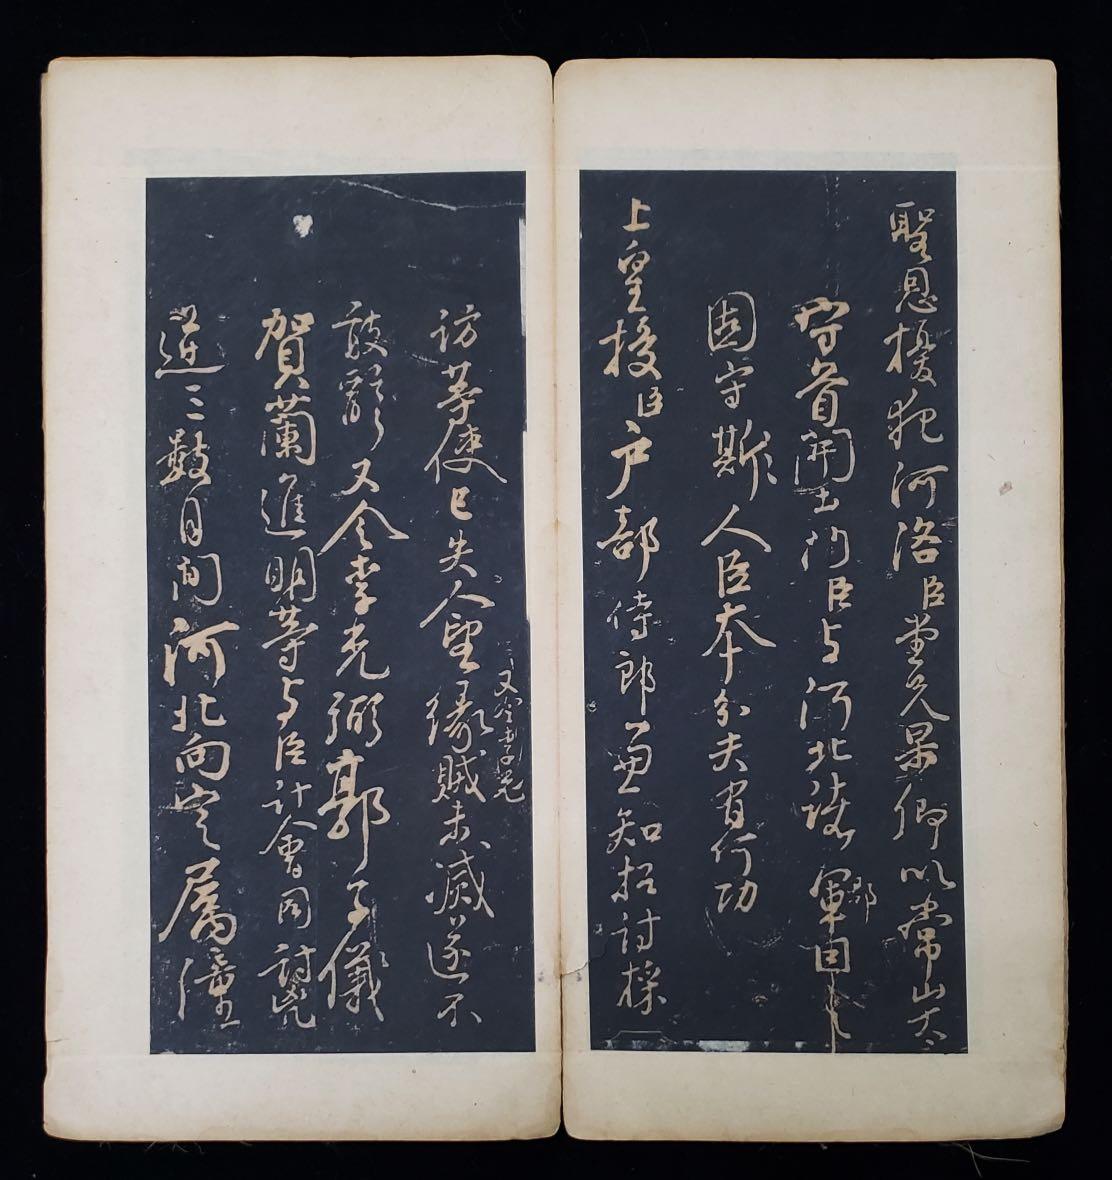 聖恩擾犯河洛臣堂兄杲卿以常山太
守首開土門臣与河北諸軍郡因
固守斯人臣本分夫有何功
上皇授臣户部侍郎兼知招討採
訪等使已失人望緣賊未滅遂不
又令李光
敢辭又令李光弼郭子儀
賀蘭進明等与臣計會同討兇
逆三數月間河北向定属潼